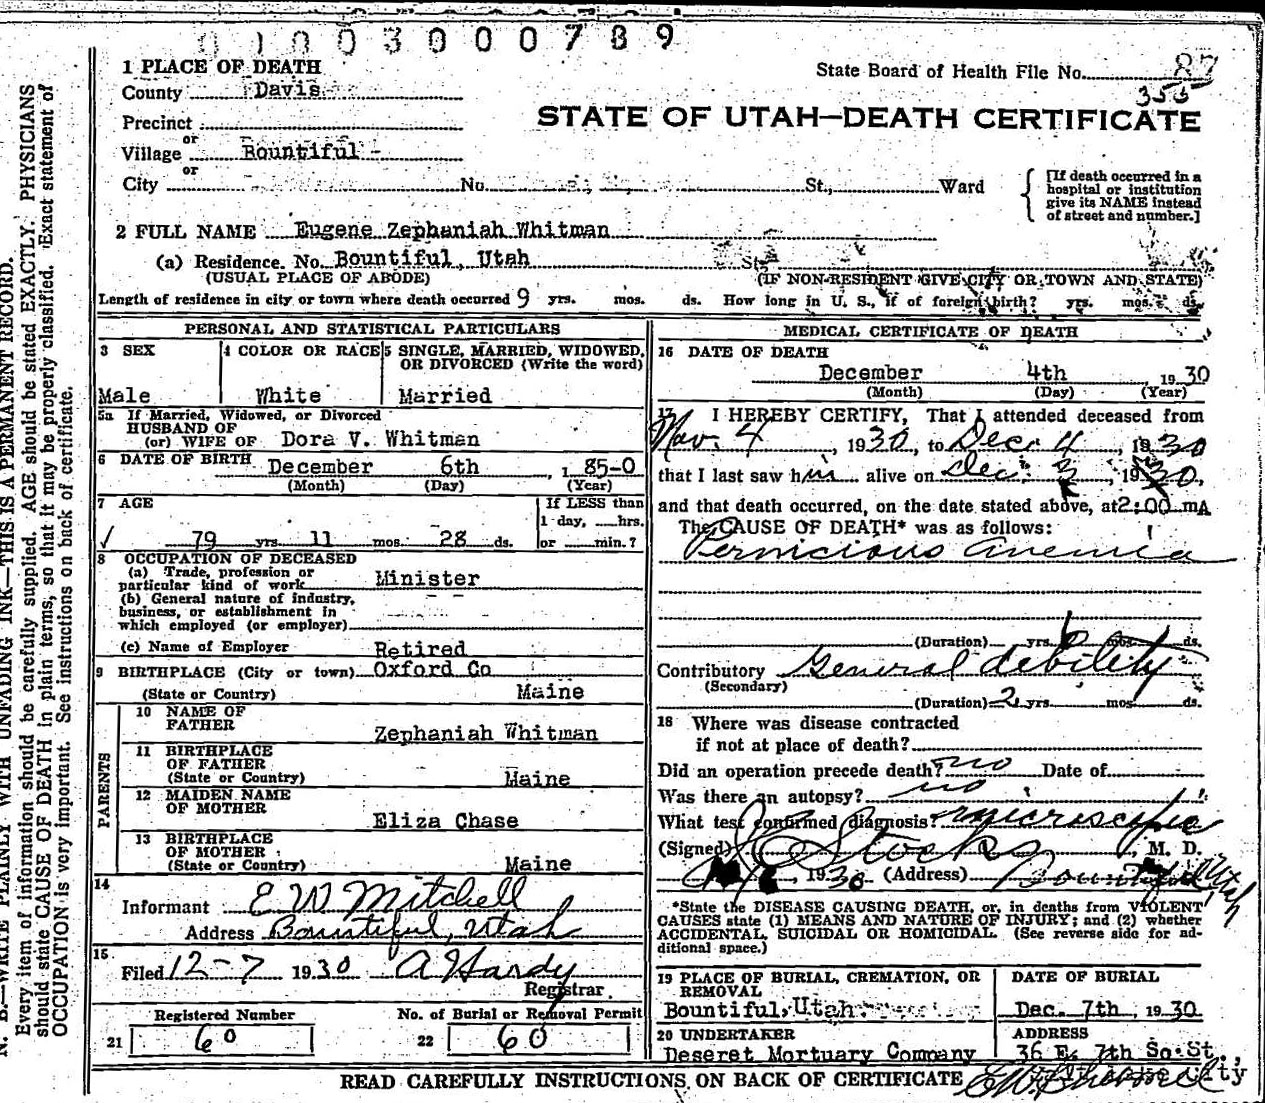 0 1 0 0 3 0 0 0 7 8 9
1 PLACE OF DEATH
State Board of Health File No. 87
355
County Davis
STATE OF UTAH—DEATH CERTIFICATE
Precinct
or
Village Bountiful -
or
City No. St., Ward
[If death occurred in a hospital or institution give its NAME instead of street and number.]
2 FULL NAME Eugene Zephaniah Whitman
(a) Residence. No. Bountiful, Utah St.
(USUAL PLACE OF ABODE) (IF NON-RESIDENT GIVE CITY OR TOWN AND STATE)
Length of residence in city or town where death occurred 9 yrs. mos. ds. How long in U. S., if of foreign birth? yrs. mos. ds.
PERSONAL AND STATISTICAL PARTICULARS
3 SEX
Male
4 COLOR OR RACE
White
5 SINGLE, MARRIED, WIDOWED, OR DIVORCED (Write the word)
Married
5a If Married, Widowed, or Divorced
HUSBAND OF
(or) WIFE OF Dora V. Whitman
6 DATE OF BIRTH December 6th, 185-0
(Month) (Day) (Year)
7 AGE
If LESS than
1 day, hrs.
79 yrs. 11 mos. 28 ds. or min.?
8 OCCUPATION OF DECEASED
(a) Trade, profession or particular kind of work Minister
(b) General nature of industry, business, or establishment in which employed (or employer)
(c) Name of Employer Retired
9 BIRTHPLACE (City or town) Oxford Co
(State or Country) Maine
PARENTS
10 NAME OF FATHER Zephaniah Whitman
11 BIRTHPLACE OF FATHER
(State or Country) Maine
12 MAIDEN NAME OF MOTHER Eliza Chase
13 BIRTHPLACE OF MOTHER
(State or Country) Maine
14
Informant E W Mitchell
Address Bountiful, Utah
15
Filed 12-7 1930 A Hardy
Registrar
Registered Number
21 60
No. of Burial or Removal Permit
22 60
MEDICAL CERTIFICATE OF DEATH
16 DATE OF DEATH
December 4th, 1930
(Month) (Day) (Year)
17 I HEREBY CERTIFY, That I attended deceased from
Nov. 4, 1930, to Dec 4, 1930
that I last saw him alive on Dec. 3, 1930,
and that death occurred, on the date stated above, at 2:00 mA
The CAUSE OF DEATH* was as follows:
Pernicious anemia
(Duration) yrs. 6 mos. ds.
Contributory General debility
(Secondary)
(Duration) 2 yrs. mos. ds.
18 Where was disease contracted
if not at place of death?
Did an operation precede death? no Date of
Was there an autopsy? no
What test confirmed diagnosis? microscopic
(Signed) Stocks, M. D.
1930 (Address) Bountiful, Utah
*State the DISEASE CAUSING DEATH, or, in deaths from VIOLENT
CAUSES state (1) MEANS AND NATURE OF INJURY; and (2) whether
ACCIDENTAL, SUICIDAL OR HOMICIDAL. (See reverse side for ad-
ditional space.)
19 PLACE OF BURIAL, CREMATION, OR REMOVAL
Bountiful, Utah.
DATE OF BURIAL
Dec. 7th, 1930
20 UNDERTAKER
Deseret Mortuary Company
ADDRESS
36 E. 7th So. St.,
READ CAREFULLY INSTRUCTIONS ON BACK OF CERTIFICATE
N. B.—WRITE PLAINLY WITH UNFADING INK—THIS IS A PERMANENT RECORD.
Every item of information should be carefully supplied. AGE should be stated EXACTLY. PHYSICIANS
should state CAUSE OF DEATH in plain terms, so that it may be properly classified. Exact statement of
OCCUPATION is very important. See instructions on back of certificate.